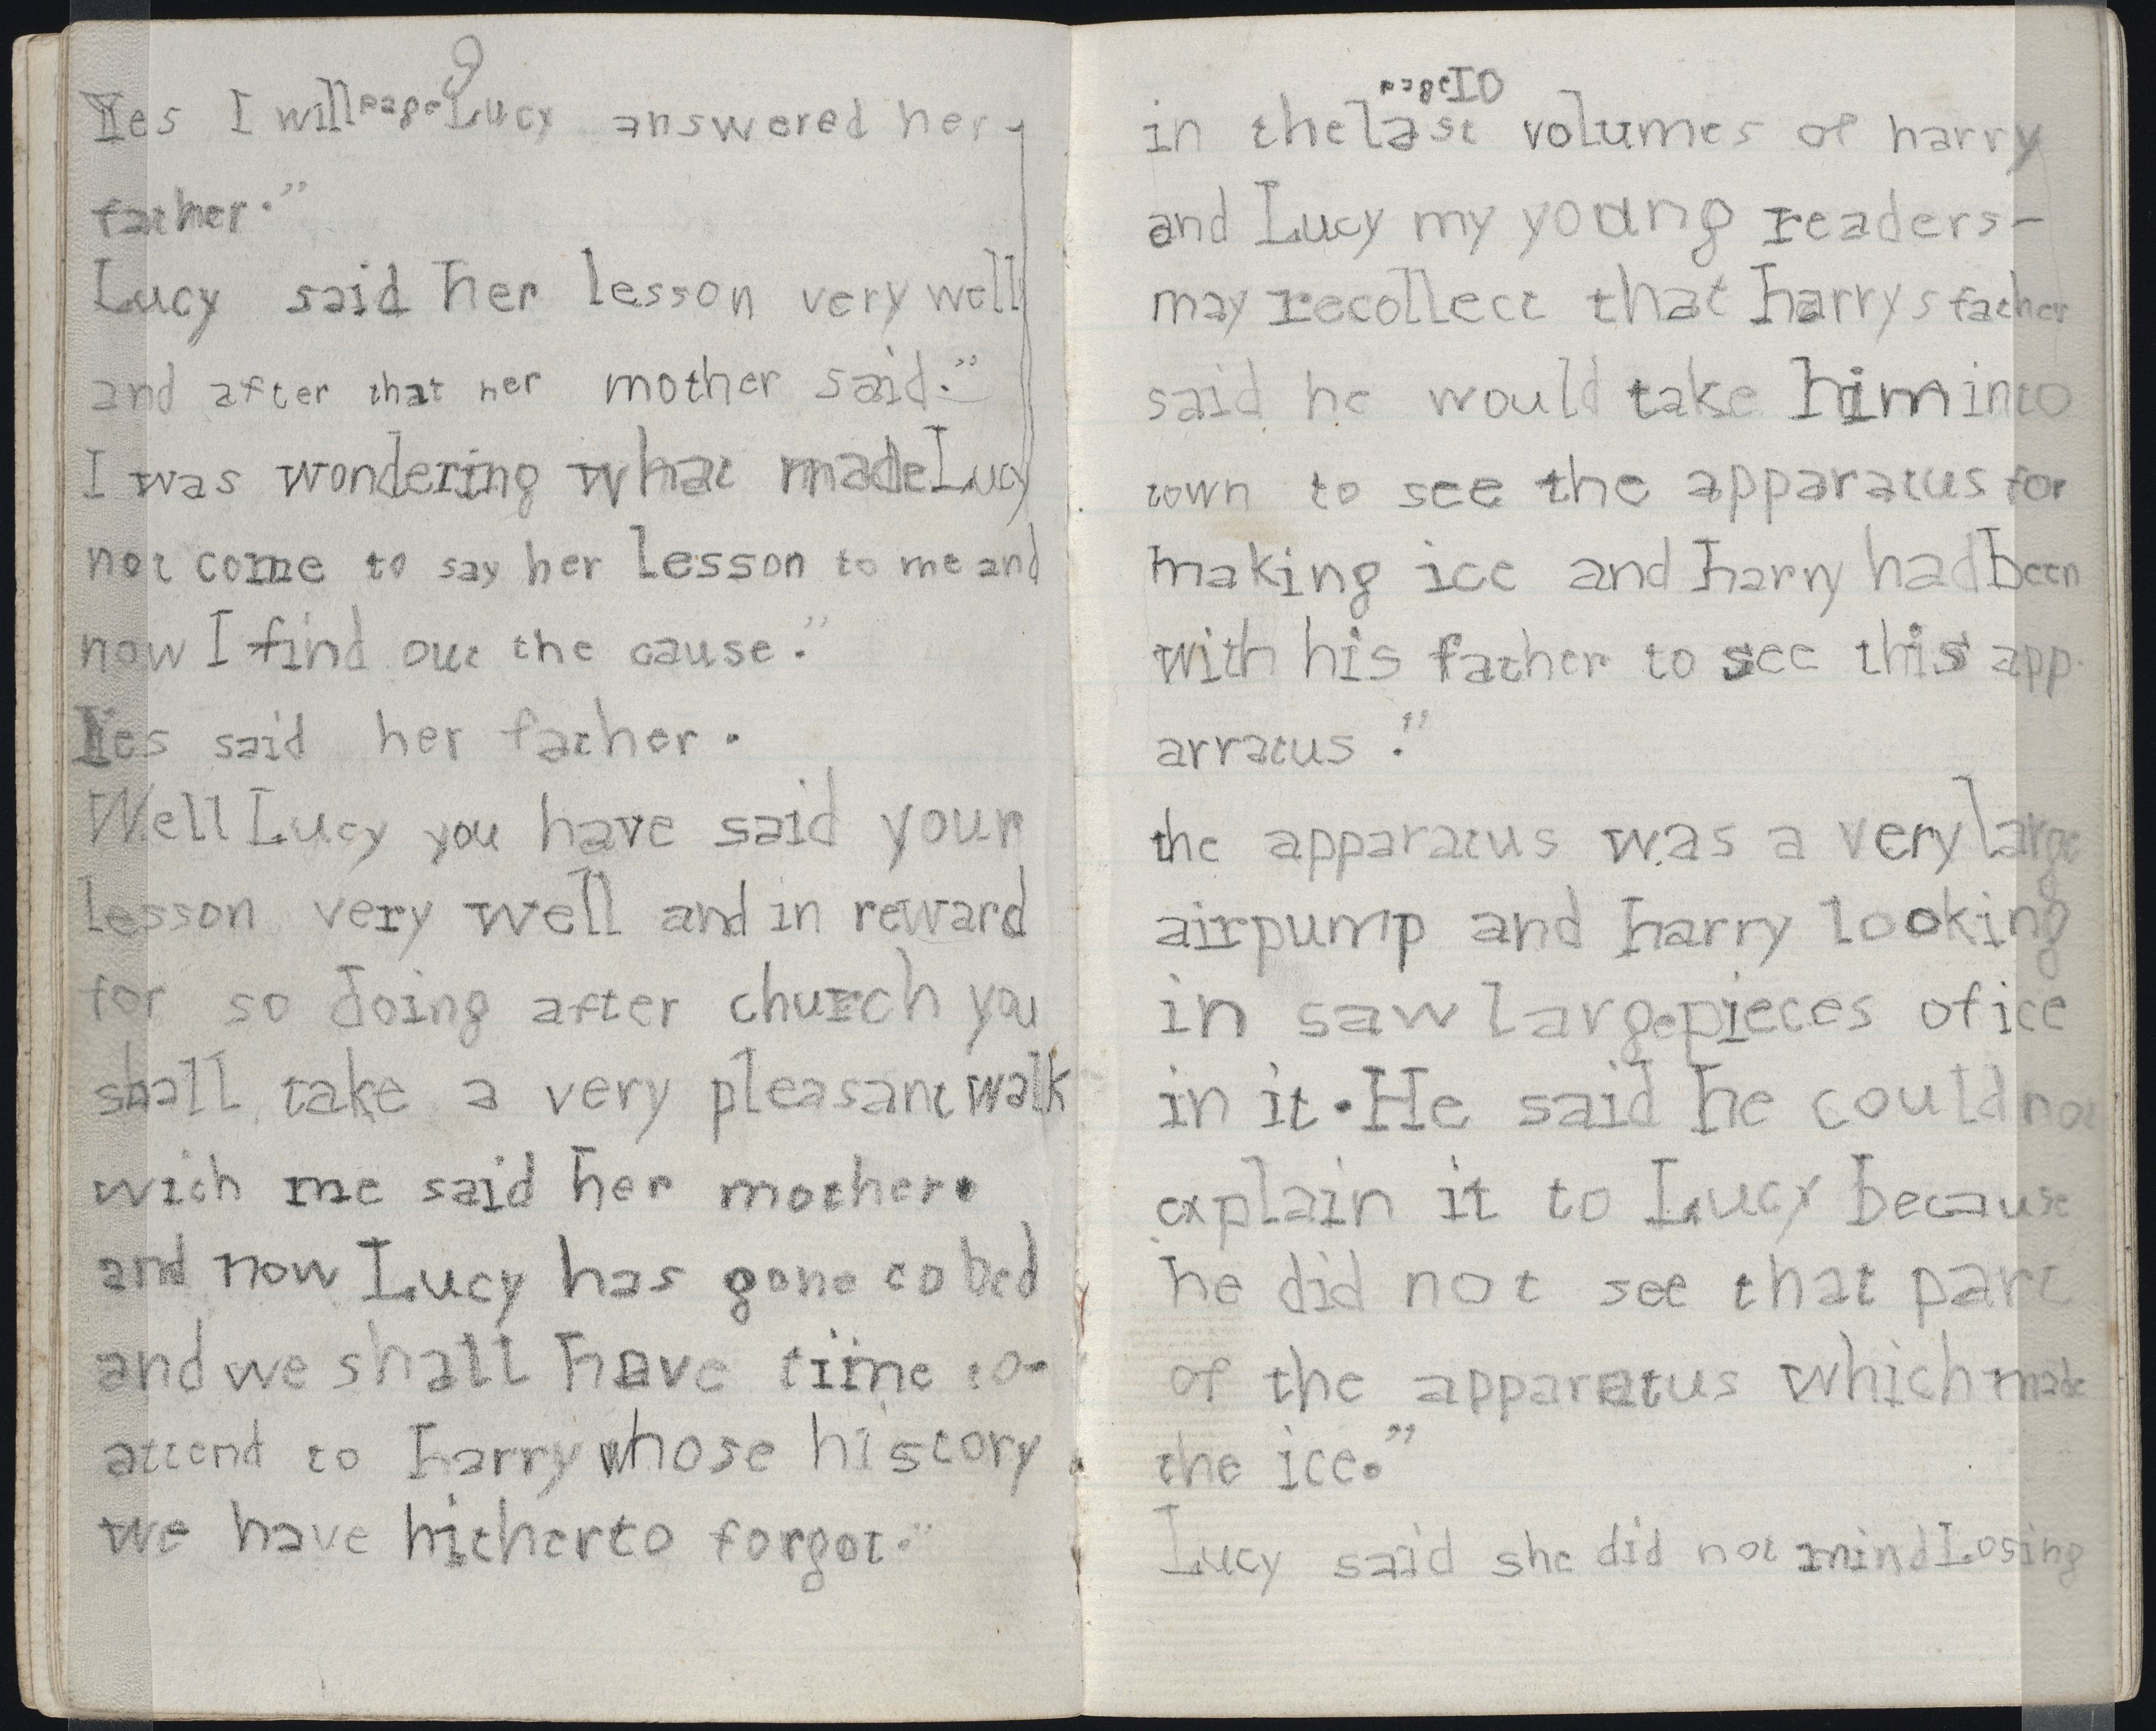 page 9
Yes I will Lucy answered her
father."
Lucy said her lesson very well
and after that her mother said."
I was wondering what made Lucy
not come to say her lesson to me and
now I find out the cause."
Yes said her father.
Well Lucy you have said your
lesson very well and in reward
for so doing after church you
shall take a very pleasant walk
with me said her mother.
and now Lucy has gone to bed
and we shall have time to-
attend to harry whose history
we have hitherto forgot."
page 10
in the last volumes of harry
and Lucy my young readers-
may recollect that harrys father
said he would take him into
town to see the apparatus for
making ice and harry had been
with his father to see this app-
arratus."
the apparatus was a very large
airpump and harry looking
in saw large pieces of ice
in it. He said he could not
explain it to Lucy because
he did not see that part
of the apparatus which made
the ice."
Lucy said she did not mind Losing